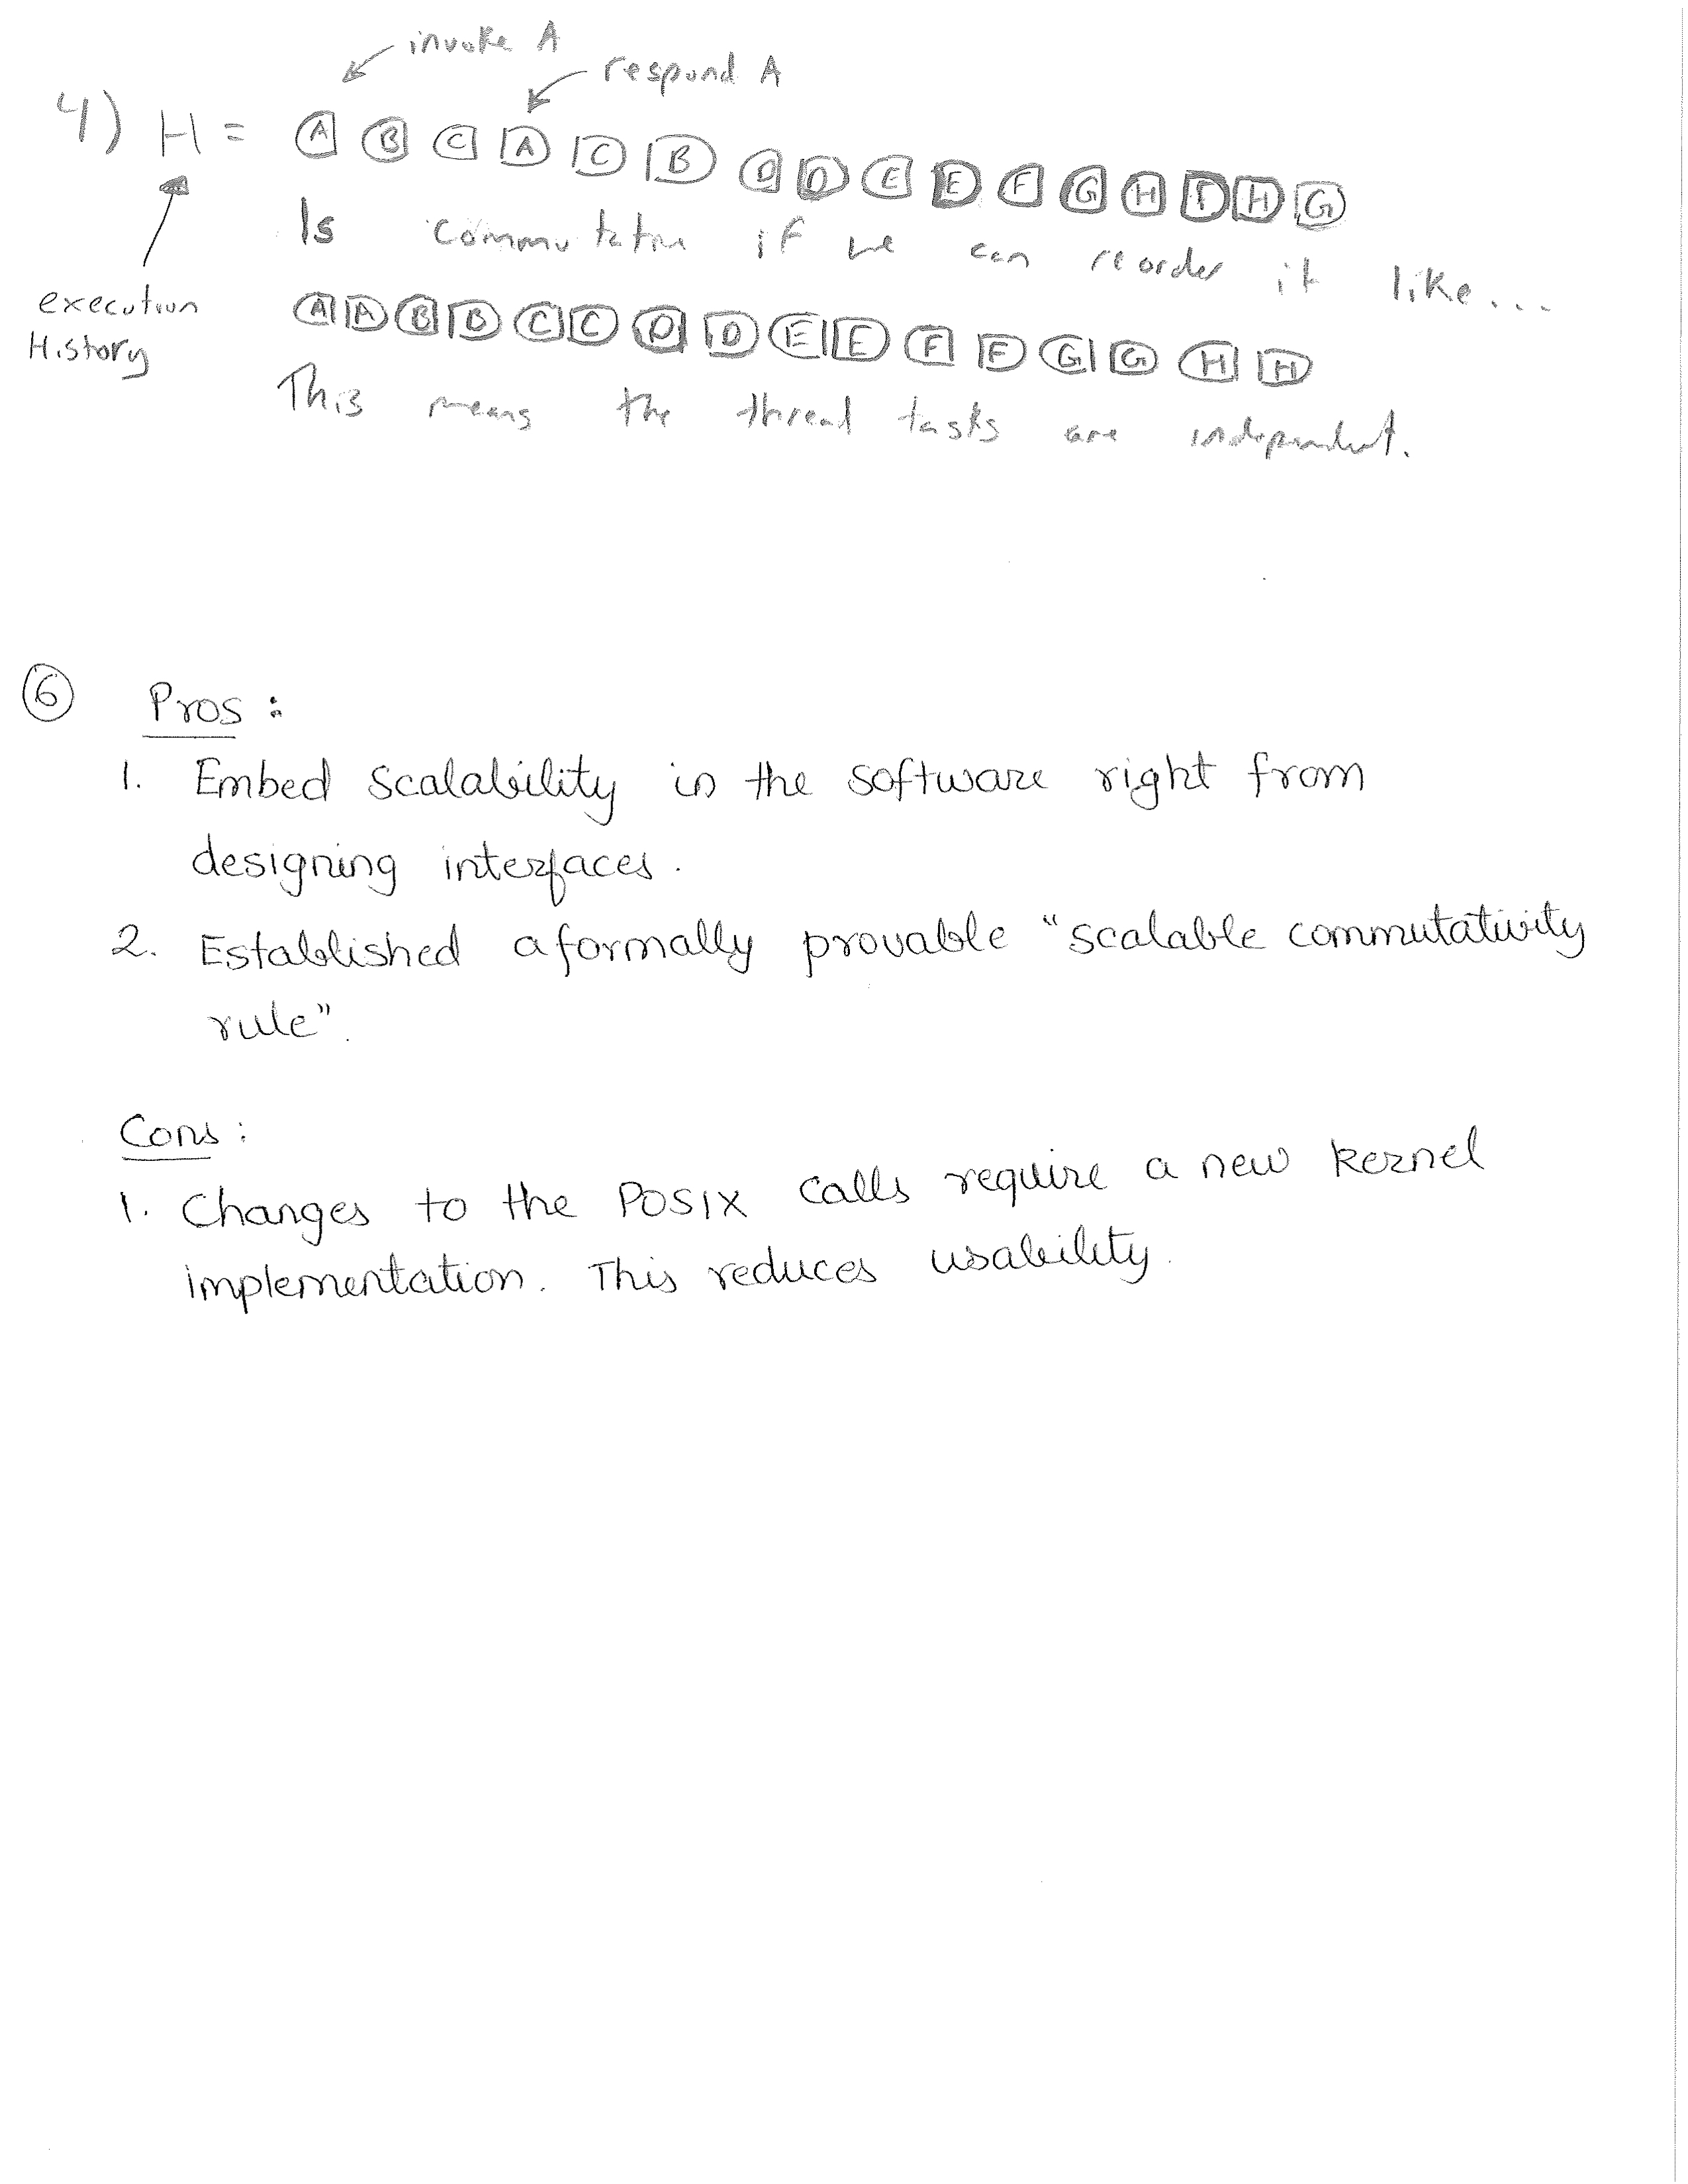 invoke A
respond A
4) H = A B C A C B D D E E F G H F H G
Is commutative if we can reorder it like...
execution
History
A A B B C C D D E E F F G G H H
This means the thread tasks are independent.
6 Pros :
1. Embed scalability in the software right from
designing interfaces.
2. Established a formally provable "scalable commutativity
rule".
Cons :
1. Changes to the POSIX calls require a new kernel
implementation. This reduces usability.